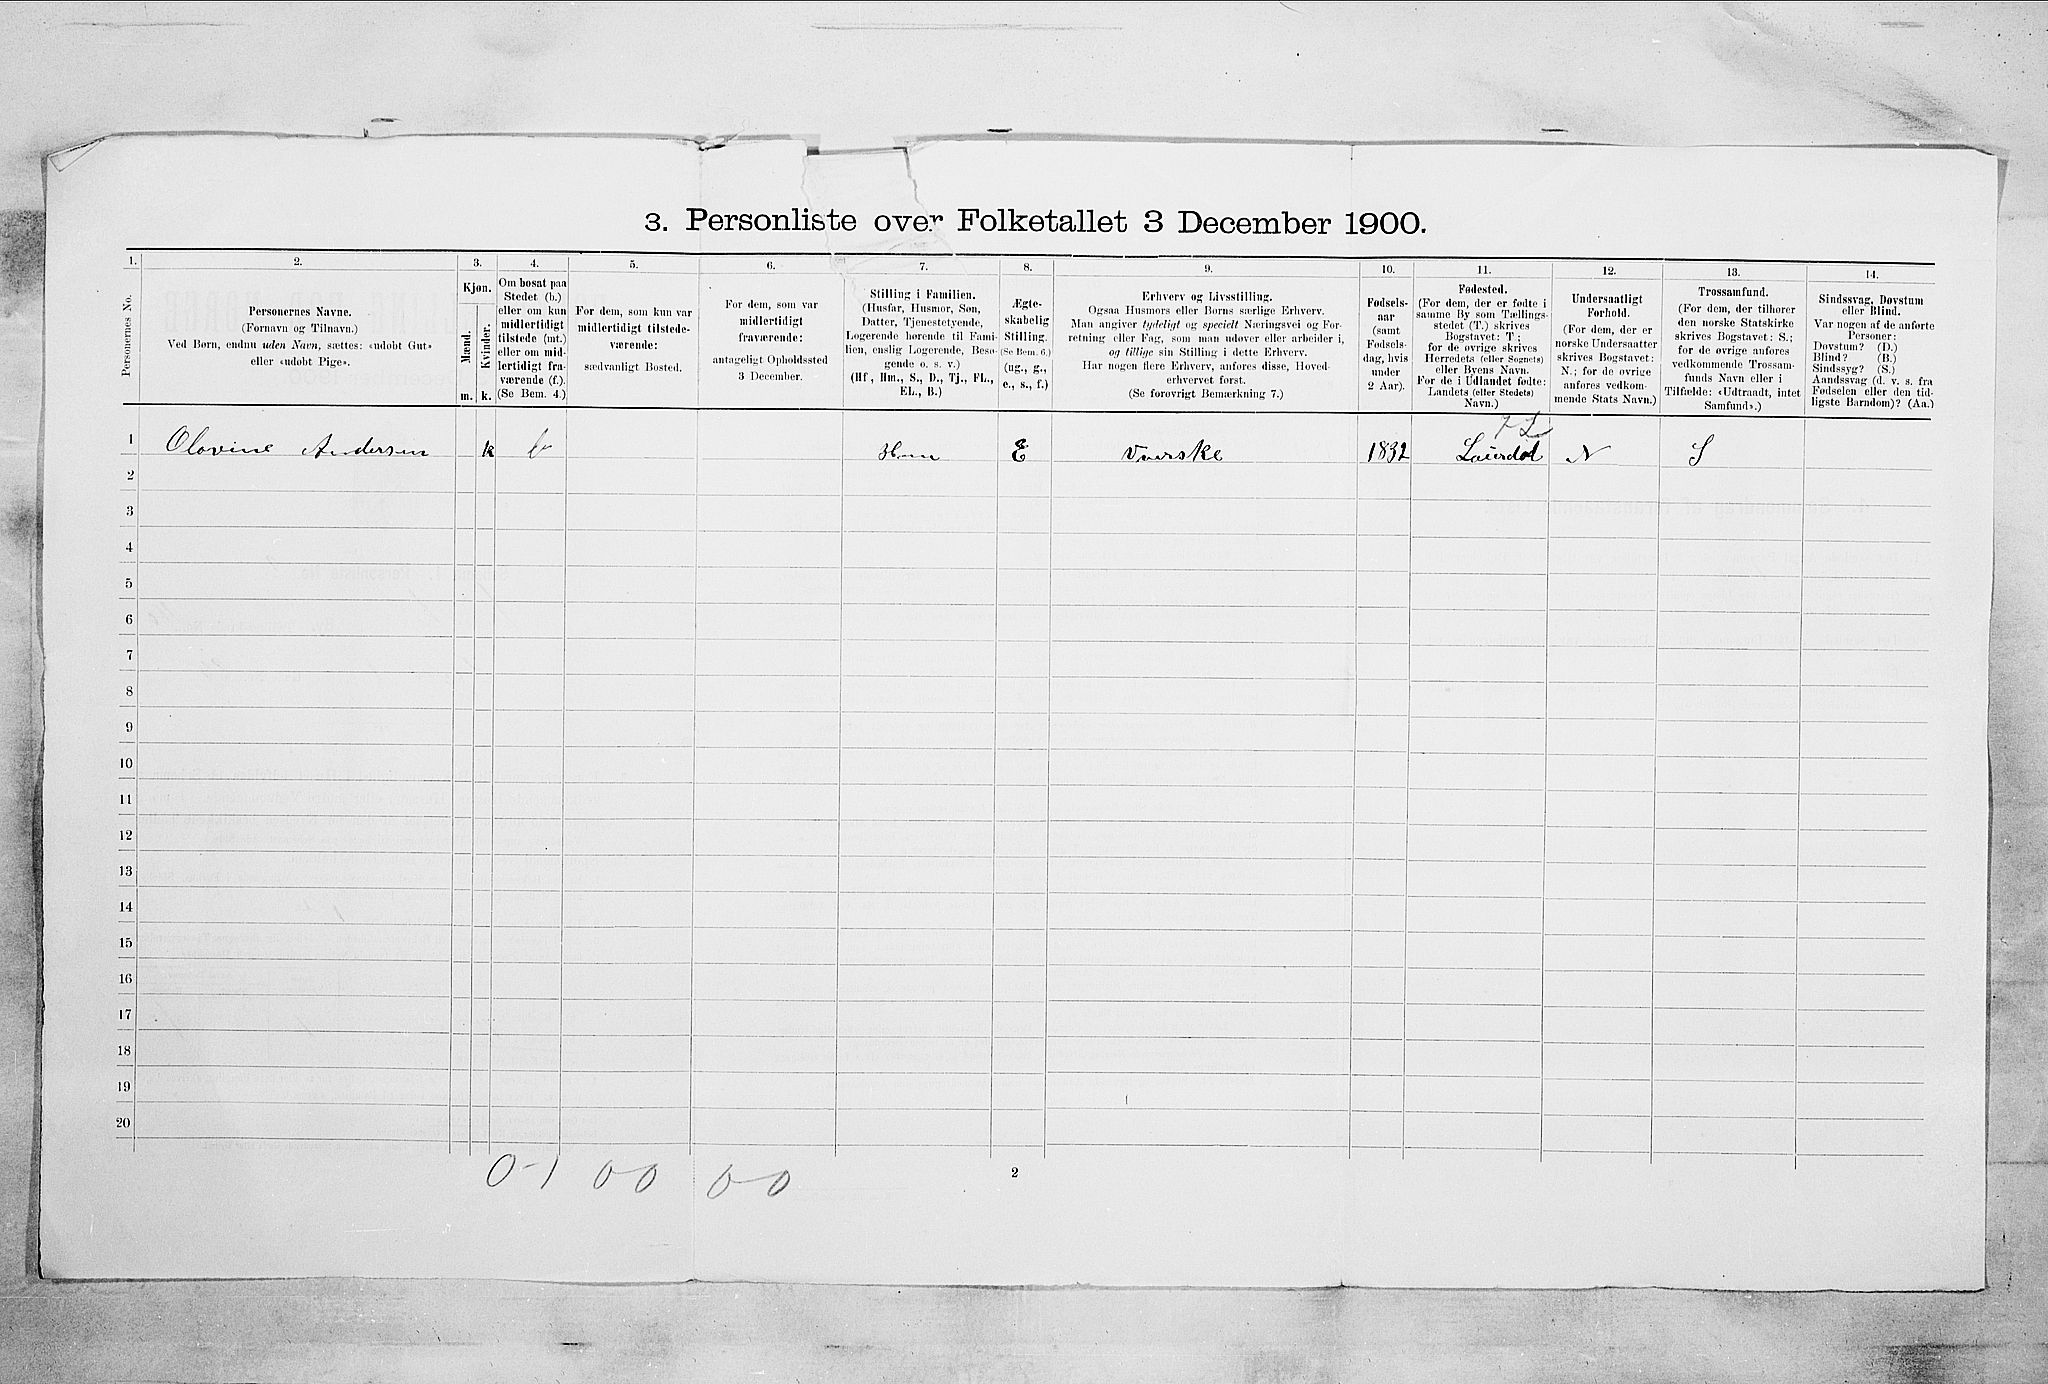 3. Personliste over Folketallet 3 December 1900.
1.
2.
3.
4.
5.
6.
7.
8.
9.
10.
11.
12.
13.
14.
Personernes No.
Personernes Navne.
(Fornavn og Tilnavn.)
Ved Børn, endnu uden Navn, sættes: «udøbt Gut»
eller «udøbt Pige».
Kjøn.
Mænd.
Kvinder.
m.
k.
Om bosat paa
Stedet (b.)
eller om kun
midlertidigt
tilstede (mt.)
eller om mid-
lertidigt fra-
værende (f.).
(Se Bem. 4.)
For dem, som kun var
midlertidigt tilstede-
værende:
sædvanligt Bosted.
For dem, som var
midlertidigt
fraværende:
antageligt Opholdssted
3 December.
Stilling i Familien.
(Husfar, Husmor, Søn,
Datter, Tjenestetyende,
Logerende hørende til Fami-
lien, enslig Logerende, Besø-
gende o. s. v.)
(Hf, Hm., S., D., Tj., FL.,
EL., B.)
Ægte-
skabelig
Stilling.
(Se Bem. 6.)
(ug., g.,
e., s., f.)
Erhverv og Livsstilling.
Ogsaa Husmors eller Børns særlige Erhverv.
Man angiver tydeligt og specielt Næringsvei og For-
retning eller Fag, som man udøver eller arbeider i,
og tillige sin Stilling i dette Erhverv.
Har nogen flere Erhverv, anføres disse, Hoved-
erhvervet først.
(Se forøvrigt Bemærkning 7.)
Fødsels-
aar
(samt
Fødsels-
dag, hvis
under
2 Aar).
Fødested.
(For dem, der er fødte i
samme By som Tællings-
stedet (T.) skrives
Bogstavet: T;
for de øvrige skrives
Herredets (eller Sognets)
eller Byens Navn.
For de i Udlandet fødte:
Landets (eller Stedets)
Navn.)
Undersaatligt
Forhold.
(For dem, der er
norske Undersaatter
skrives Bogstavet:
N.; for de øvrige
anføres vedkom-
mende Stats Navn.)
Trossamfund.
(For dem, der tilhører
den norske Statskirke
skrives Bogstavet: S.;
for de øvrige anføres
vedkommende Trossam-
funds Navn eller i
Tilfælde: «Udtraadt, intet
Samfund».)
Sindssvag, Døvstum
eller Blind.
Var nogen af de anførte
Personer:
Døvstum? (D.)
Blind? (B.)
Sindssyg? (S.)
Aandssvag (d. v. s. fra
Fødselen eller den tid-
ligste Barndom)? (Aa.)
1 Olovine Andersen k b Hm E Vaerske 1832 Lauerdal N S
2
3
4
5
6
7
8
9
10
11
12
13
14
15
16
17
18
19
20
0-1 0-0 0-0
2